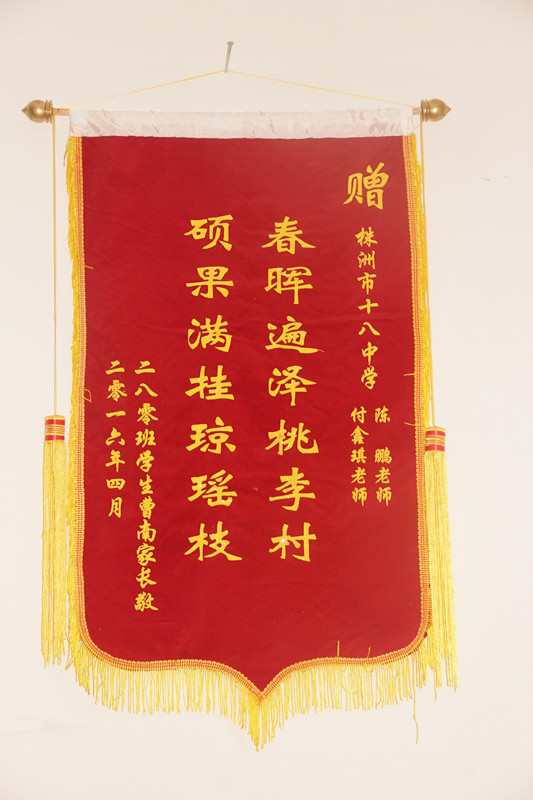 赠
株洲市十八中学
陈鹏老师
付鑫琪老师
春晖遍泽桃李村
硕果满挂琼瑶枝
二八零班学生曹南家长敬
二零一六年四月